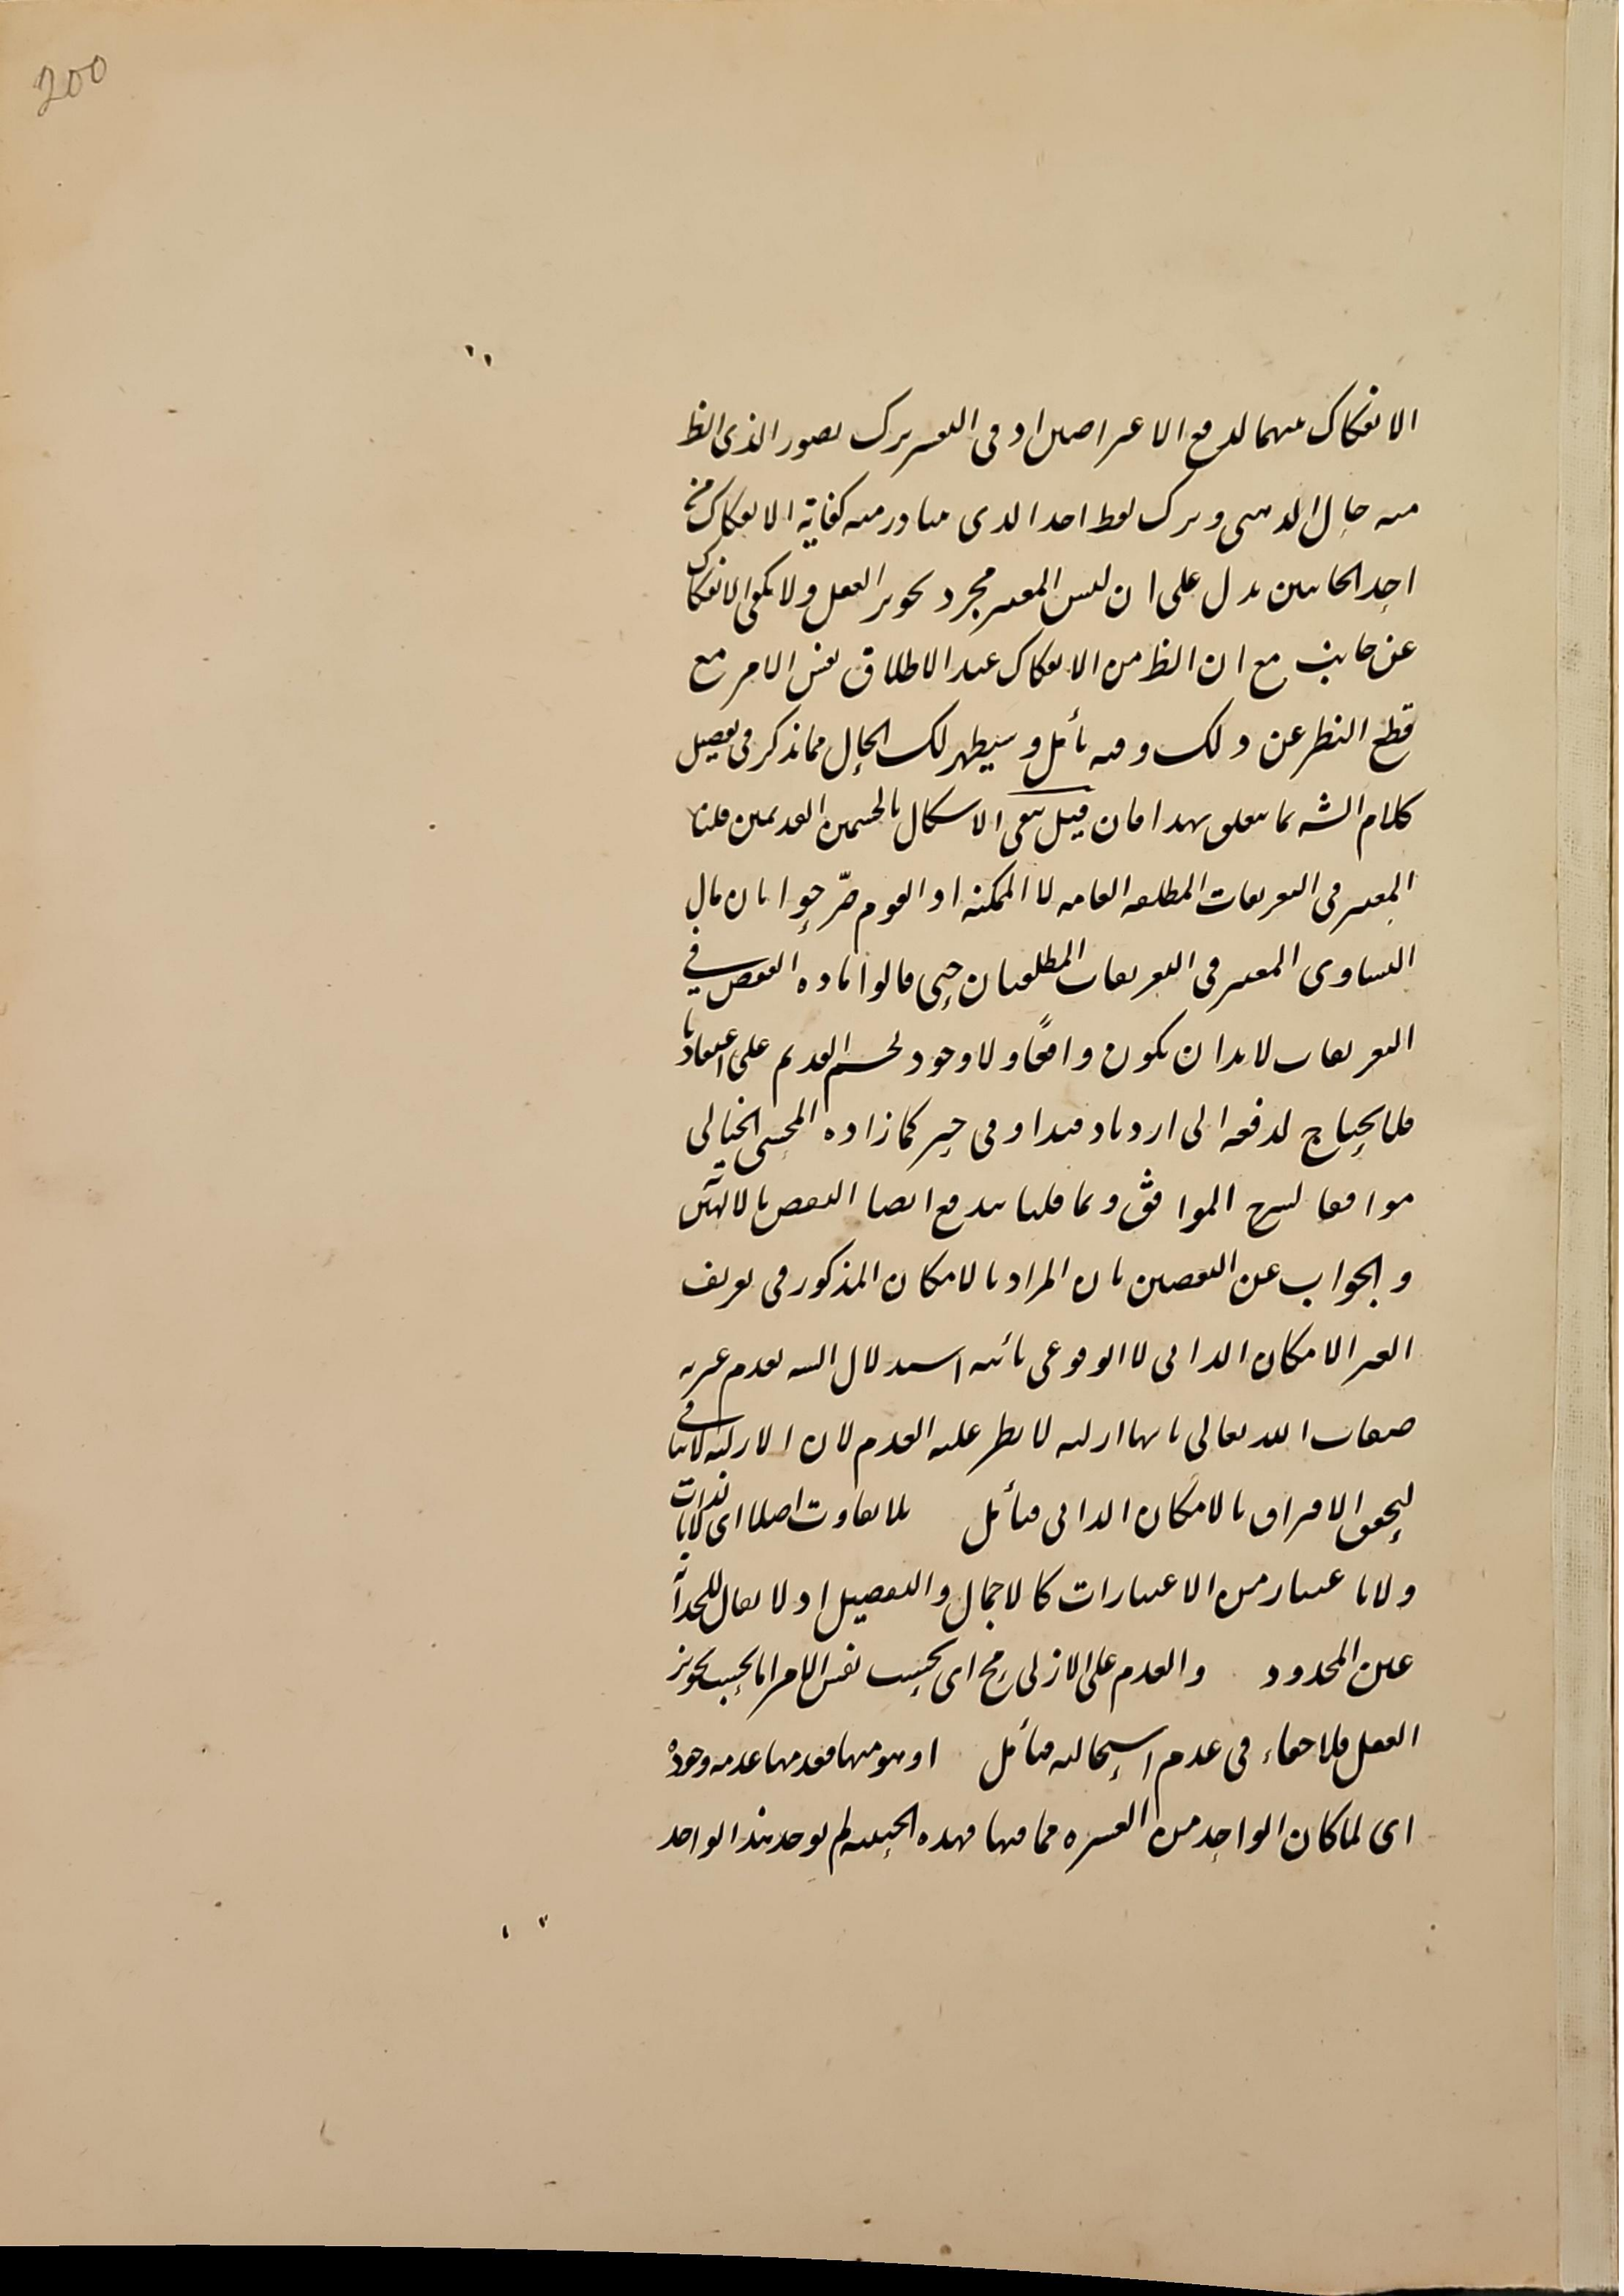 200
الانفكاك بينهما لدفع الاعتراضين اذ فى التعبير بترك تصور الذى الظ
منه حال الذهنى وبترك لفظ احد الذى يتبادر منه كفاية الانفكاك من
احد الجانبين يدل على ان ليس المعتبر مجرد تجويز العقل ولا يكفى الانفكاك
عن جانب مع ان الظ من الانفكاك عند الاطلاق نفس الامر مع
قطع النظر عن ذلك وفيه تأمل وسيظهر لك الحال مما نذكر فى تفصيل
كلام الش بما يتعلق بهذا فان قيل يبقى الاشكال بالجسمين القديمين قلنا
المعتبر فى التعريفات المطلقة العامة لا الممكنة اذ القوم صرّحوا بان مآل
التساوى المعتبر فى التعريفات المطلقتان حتى قالوا مادة النقض فى
التعريفات لا بد ان يكون واقعًا ولا وجود لجسم القديم على اعتقادنا
فلا يحتاج لدفعه الى ازدياد قيد او فى حيز كما زاده المحشى الخيالى
موافقا لشرح المواقف وبما قلنا يندفع ايضا النقض بالالهين
والجواب عن النقضين بان المراد بالامكان المذكور فى تعريف
الغير الامكان الذاتى لا الوقوعى يأبه استدلال الش بعدم غيرية
صفات الله تعالى بانها ازلية لا يطر عليه العدم لان الازلية لا ينافى
ليحقق الافتراق بالامكان الذاتى فتأمل بلا تفاوت اصلا اى لا بالذات
ولا باعتبار من الاعتبارات كالاجمال والتفصيل اذ لا يقال للحد انه
عين المحدود والعدم على الازلى مح اى بحسب نفس الامر اما بحسب تجويز
العقل فلا خفاء فى عدم استحالته فتأمل او هو منها فعدمها عدمه ووجودها وجوده
اى لما كان الواحد من العشرة مما فيها فهذه الحيثية لم يوجد هذا الواحد